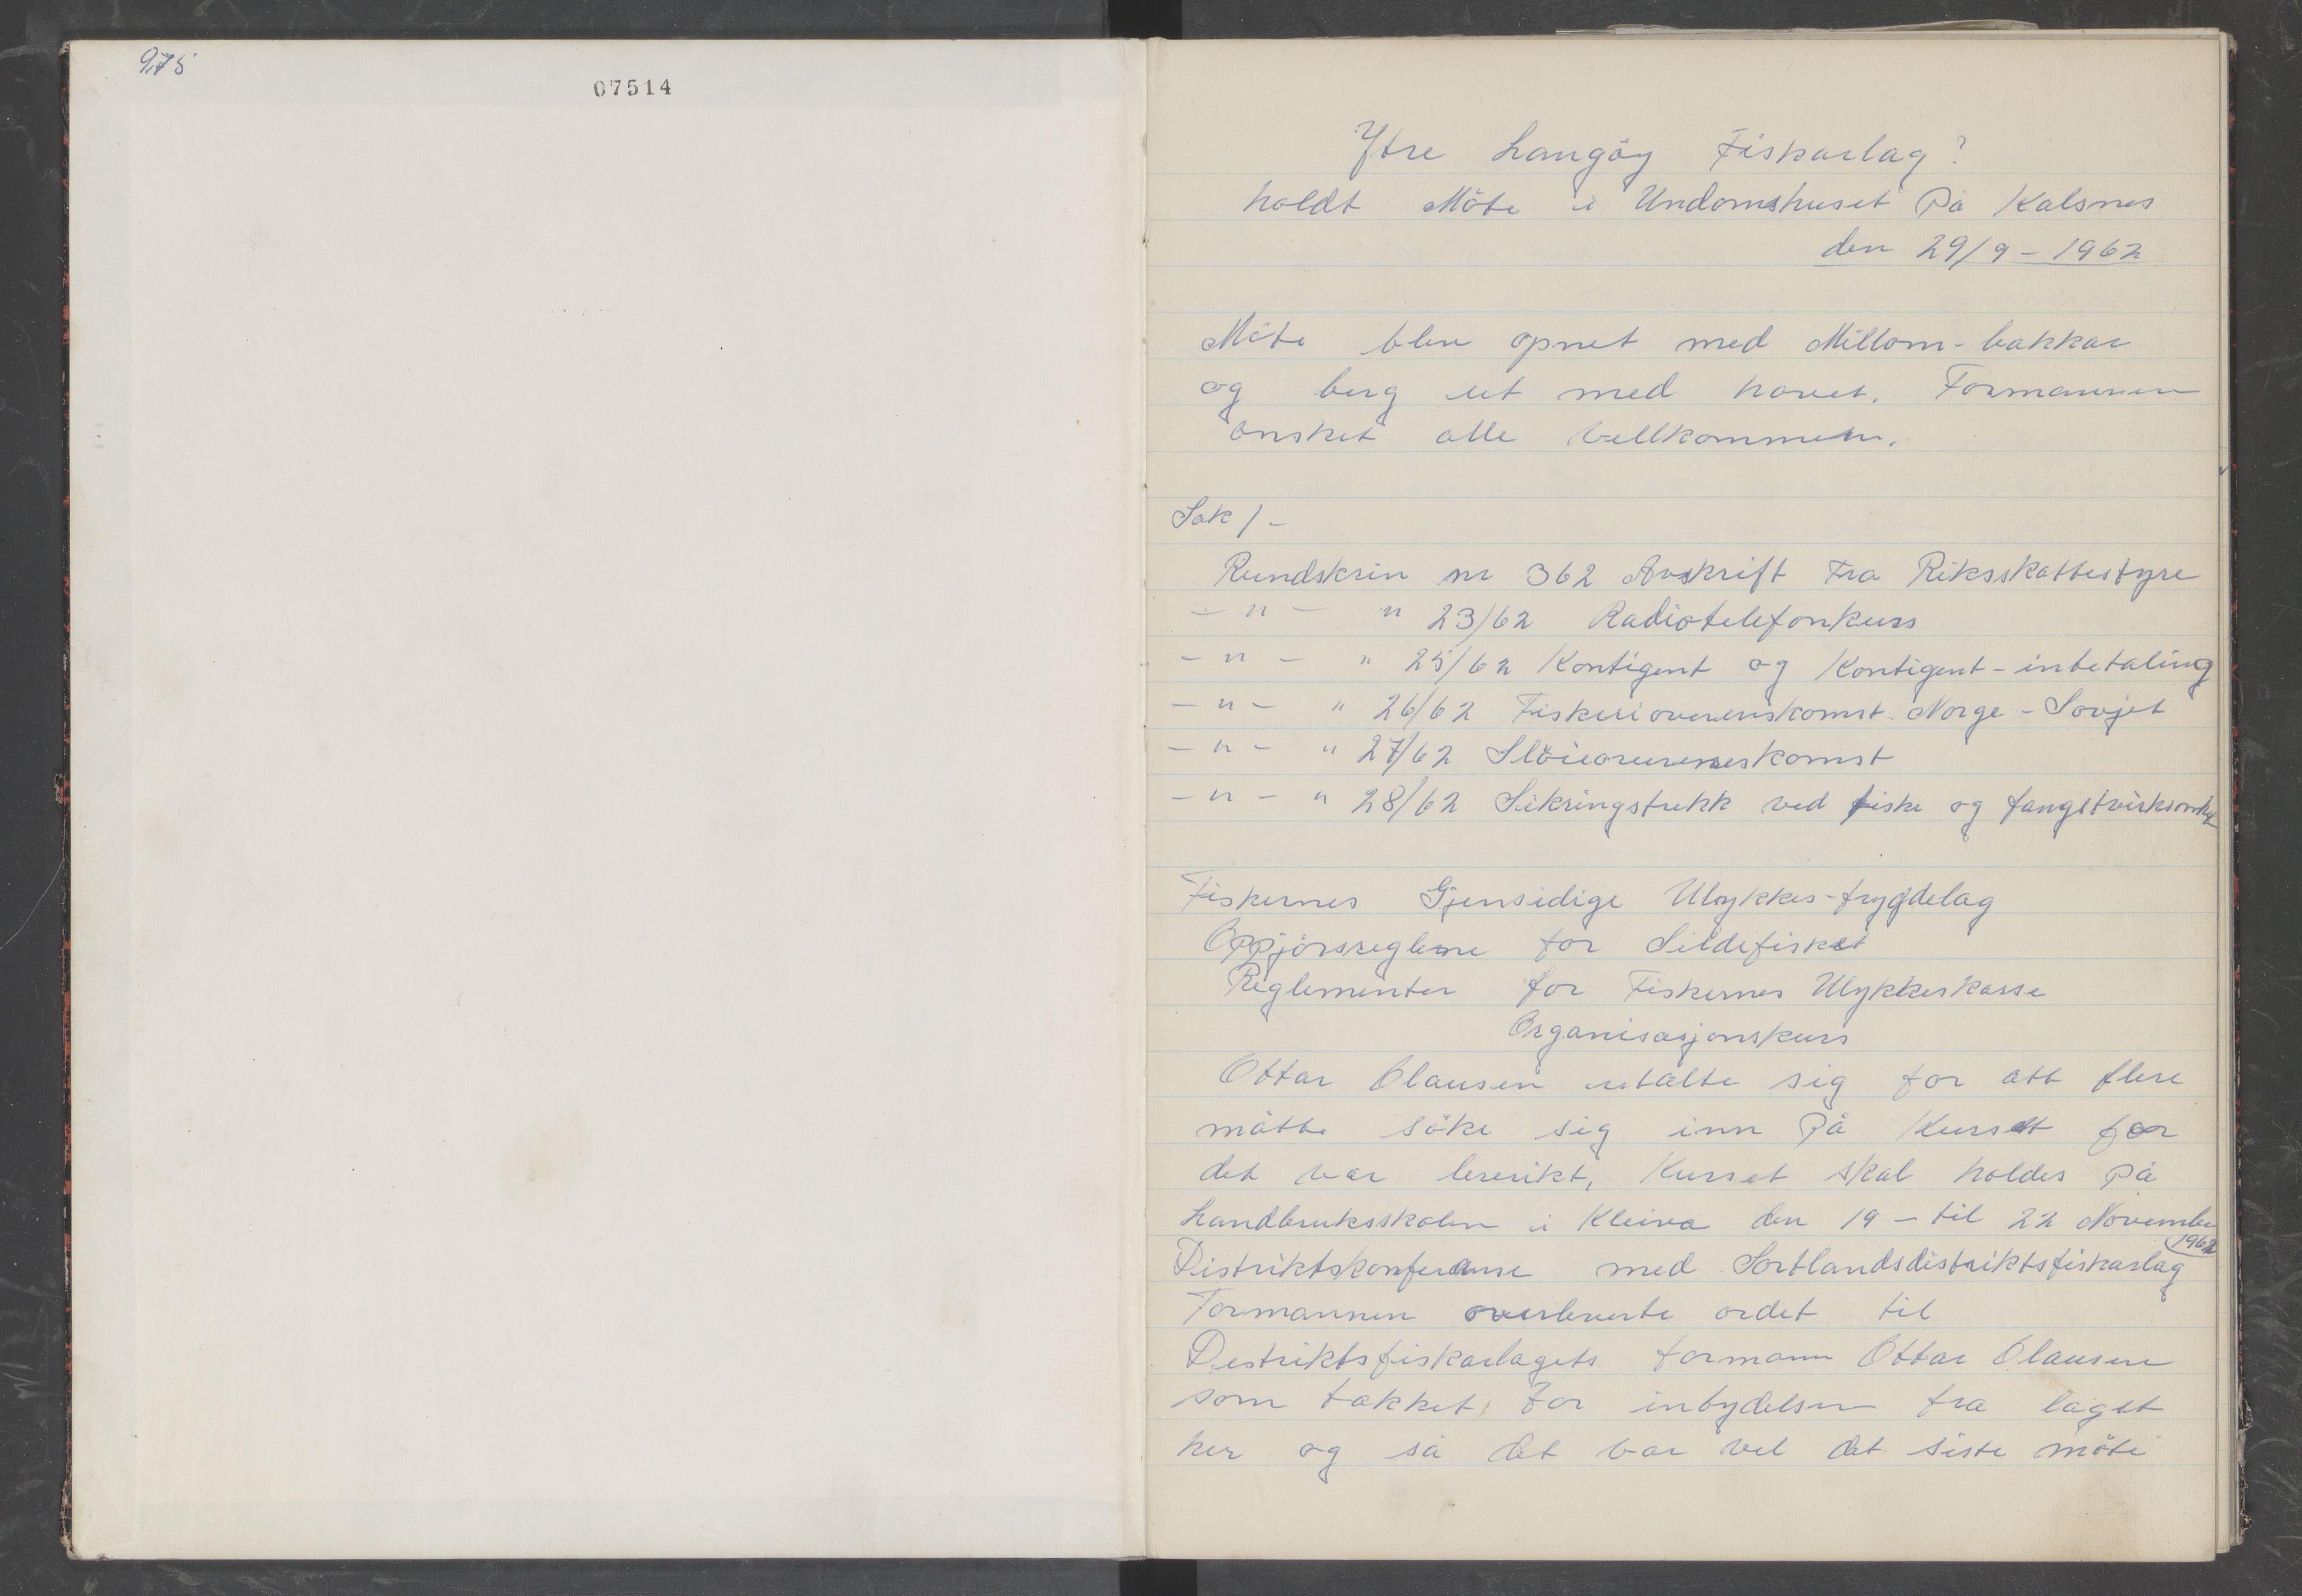 975
07514
Ytre Langöy Fiskarlag?
holdt Möte i Undomshuset På Kalsnes
den 29/9 - 1962
Möte blev opnet med Millom-bakkar
og berg ut med havet. Formannen
önsket alle velkommen.
Sak 1 -
Rundskriv nr 362 Avskrift Fra Riksskattestyre
- " - " 23/62 Radiotelefonkurs
- " - " 25/62 Kontigent og Kontigent-inbetaling
- " - " 26/62 Fiskerioverenskomst Norge - Sovjet
- " - " 27/62 Slöieoverenskomst
- " - " 28/62 Sikringstrekk ved fiske og fangstvirksomhet
Fiskernes Gjensidige Ulykkes-trygdelag
Oppjörsreglene for Sildefisket
Reglementer for Fiskernes Ulykkeskasse
Organisasjonskurs
Ottar Olausen utalte sig for att flere
måtte söke sig inn På Kurset for
det var lererikt, Kurset skal holdes på
Landbruksskolen i Kleiva den 19 - til 22 November
1962
Distriktskonferanse med Sortlandsdistriktsfiskarlag
Formannen overleverte ordet til
Destriktsfiskarlagets formann Ottar Olausen
som takket for inbydelsen fra laget
her og så det var vel det siste möte